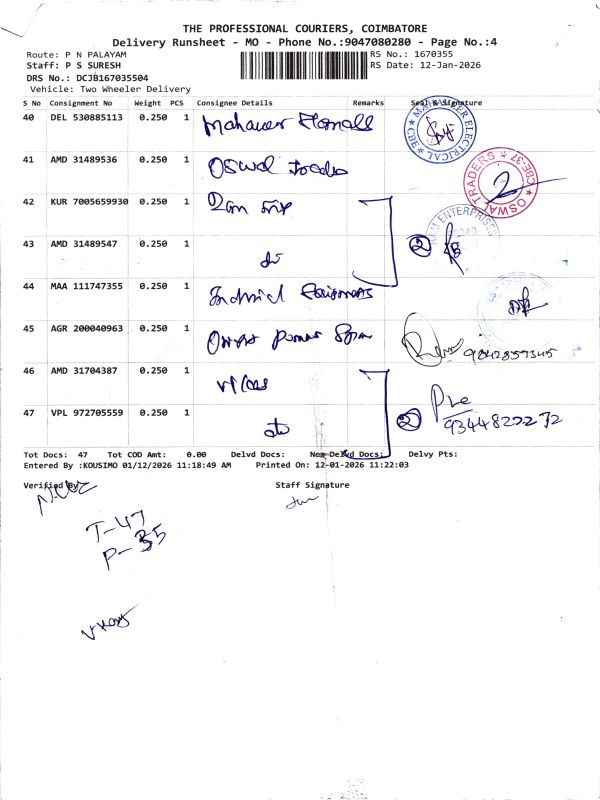 THE PROFESSIONAL COURIERS, COIMBATORE
Delivery Runsheet - MO - Phone No.:9047080280 - Page No.:4
Route: P N PALAYAM RS No.: 1670355
Staff: P S SURESH RS Date: 12-Jan-2026
DRS No.: DCJB167035504
Vehicle: Two Wheeler Delivery
S No Consignment No Weight PCS Consignee Details Remarks Seal & Signature
40 DEL 530885113 0.250 1 Mahaveer
41 AMD 31489536 0.250 1 Oswal OSWAL TRADERS CBE-37
42 KUR 7005659930 0.250 1 Ram
43 AMD 31489547 0.250 1 do 2 RAM ENTERPRISES
44 MAA 111747355 0.250 1
45 AGR 200040963 0.250 1 Power 9842859345
46 AMD 31704387 0.250 1
47 VPL 972705559 0.250 1 do 2 9344822272
Tot Docs: 47 Tot COD Amt: 0.00 Delvd Docs: Non Delvd Docs: Delvy Pts:
Entered By :KOUSIMO 01/12/2026 11:18:49 AM Printed On: 12-01-2026 11:22:03
Verified By Staff Signature
T-47
P-35